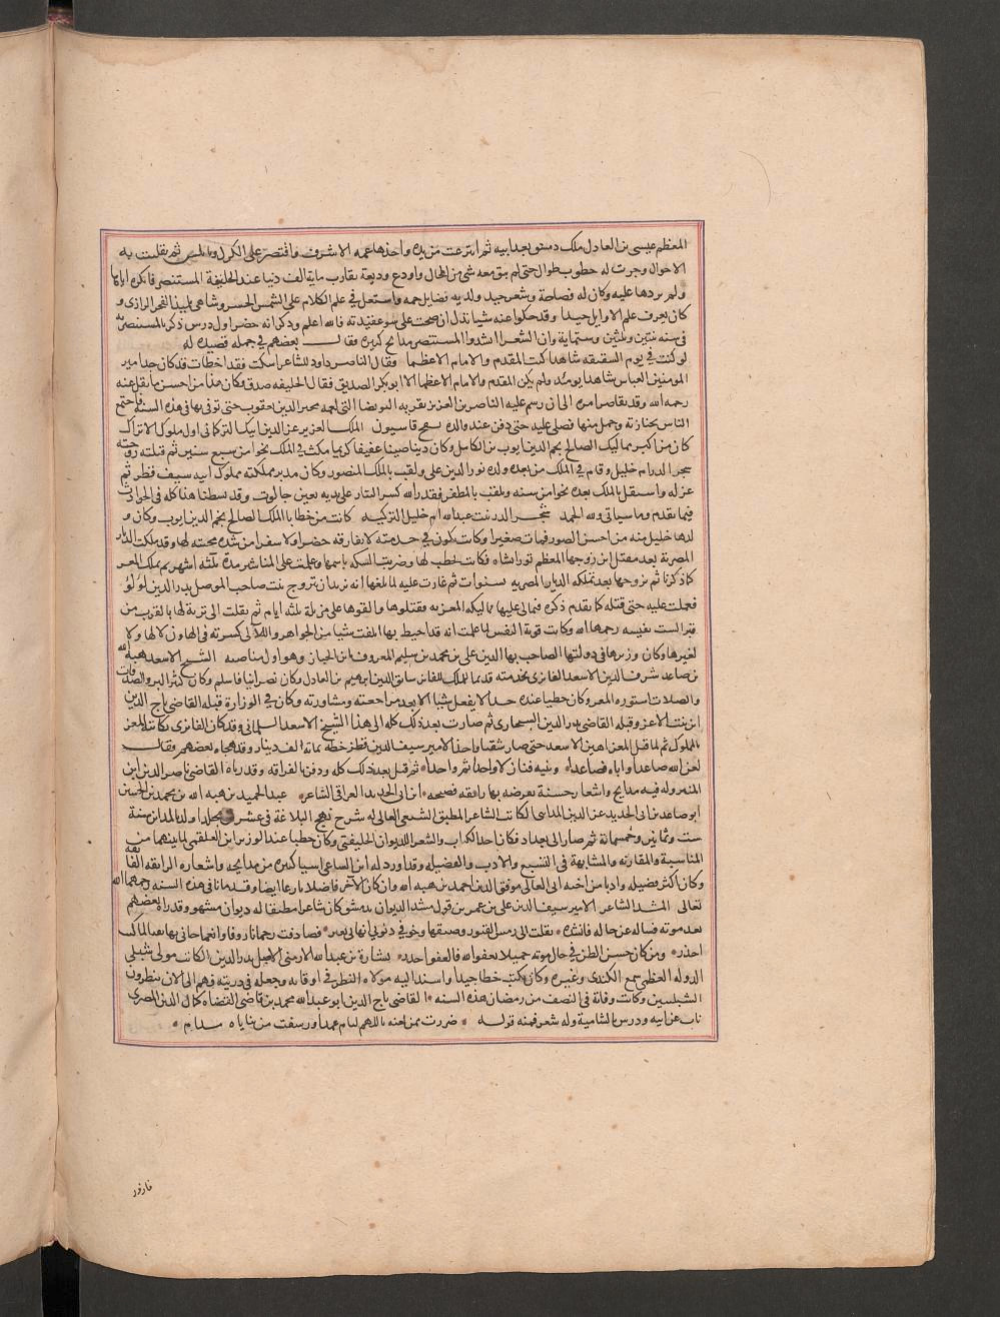 المعظم عيسى بن العادل ملك دمشق بعد ابيه ثم انتزعت من يده واخذها عمه الاشرف واقتصر على الكرك ونابلس ثم تقلبت به
الاحوال وجرت له خطوب طوال حتى لم يبق معه شي من المحال واودع وديعة تقارب ماية الف دينار عند الخليفة المستنصر فانكره اياها
ولم يردها عليه وكان له فصاحة وشعر جيد ولديه فضايل جمه واشتغل في علم الكلام على الشمس الخسروشاهي تلميذ الفخر الرازي و
كان يعرف علم الاوايل جيدا وقد حكوا عنه شيا تدل ان صحت على سوء عقيدته فالله اعلم وذكر انه حضر اول درس ذكر بالمستنصريه
في سنه ثنتين وثلثين وستماية وان الشعرا انشدوا المستنصر مدايح كثيره فقال بعضهم في جمله قصيده له
لو كنت في يوم السقيفه شاهدا كنت المقدم والامام الاعظما وقال الناصر داود للشاعر اسكت فقد اخطات قد كان جد امير
المومنين العباس شاهدا يومئذ ولم يكن المقدم والامام الاعظم الا ابو بكر الصديق فقال الخليفه صدق وكان هذا من احسن ما نقل عنه
رحمه الله وقد تقاصر امره الى ان رسم عليه الناصر بن العزيز بقريه البويضا التي لعمه مجير الدين يعقوب حتى توفي بها في هذه السنه فاجتمع
الناس بجنازته وحمل منها فصلي عليه حتى دفن عند والده بسفح قاسيون الملك العزيز عز الدين ايبك التركماني اول ملوك الاتراك
كان من اكبر مماليك الصالح نجم الدين ايوب بن الكامل وكان دينا صينا عفيفا كريما مكث في الملك نحوا من سبع سنين ثم قتلته زوجته
شجر الدر ام خليل وقام في الملك من بعده ولده نور الدين علي ولقب بالملك المنصور وكان مدبر مملكته مملوك ابيه سيف قطز ثم
عزله واستقل بالملك بعده نحوا من سنه وتلقب بالمظفر فقدر الله كسر التتار على يديه بعين جالوت وقد بسطنا هذا كله في الحوادث
فيما تقدم وما سياتي ولله الحمد شجر الدر بنت عبد الله ام خليل التركيه كانت من خطايا الملك الصالح نجم الدين ايوب وكان و
لدها خليل منه من احسن الصور فمات صغيرا وكانت تكون في خدمته لا يفارقه حضرا ولا سفرا من شدة محبته لها وقد ملكت الديار
المصرية بعد مقتل ابن زوجها المعظم تورانشاه فكانت يخطب لها وضربت السكه باسمها وعلمت على المناشير مدة ثلثه اشهر ثم تملك المعز
كما ذكرنا ثم تزوجها بعد تملكه الديار المصريه بسنوات ثم غارت عليه لما بلغها انه يريد ان يتزوج بنت صاحب الموصل بدر الدين لولو
فعملت عليه حتى قتله كما تقدم ذكره فتمالى عليها مماليكه المعزيه فقتلوها والقوها على مزبلة ثلثه ايام ثم نقلت الى تربة لها بالقرب من
قبر الست نفيسه رحمها الله وكانت قوية النفس لما علمت انه قد احيط بها اتلفت شيا من الجواهر واللآلي كسرته في الهاون لا لها ولا
لغيرها وكان وزيرها في دولتها الصاحب بها الدين علي بن محمد بن سليم المعروف بابن الحنا وهو اول مناصبه الشيخ الاسعد هبه الله
بن صاعد شرف الدين الاسعد الفايزي بخدمته قديما للملك الفايز سابق الدين ابرهيم بن العادل وكان نصرانيا فاسلم وكان كثير البر والصدقات
والصلات استوزره المعز وكان حظيا عنده جدا لا يفعل شيا الا بعد مراجعته ومشاورته وكان في الوزارة قبله القاضي تاج الدين
ابن بنت الاعز وقبله القاضي بدر الدين السنجاري ثم صارت بعد ذلك كله الى هذا الشيخ الاسعد السلماني وقد كان الفايزي يكاتبه المعز
بالمملوك ثم لما قتل المعز اهين الاسعد حتى صار شقيا واخذ الامير سيف الدين قطز خطه بماية الف دينار وقد هجاه بعضهم فقال
لعن الله صاعدا واباه فصاعدا وبنيه فنازلا واحدا ثم واحدا ثم قتل بعد ذلك كله ودفن بالقرافة وقد رثاه القاضي ناصر الدين ابن
المنير وله فيه مدايح واشعار حسنة بعرضه بها رايقه فصيحه ابن ابي الحديد العراقي الشاعر عبد الحميد بن هبه الله بن محمد بن الحسين
ابو حامد بن ابي الحديد عز الدين المدايني الكاتب الشاعر المطبق الشيعي الغالي له شرح نهج البلاغة في عشرين مجلدا ولد بالمداين سنة
ست وثمانين وخمسماية ثم صار الى بغداد فكان احد الكتاب والشعرا بالديوان الخليفتي وكان حظيا عند الوزير ابن العلقمي لما بينهما من
المناسبة والمقاربه والمشابهة في التشيع والادب والفضيله وقد اورد له ابن الساعي اشيا كثيره من مدايحه واشعاره الرايقه الفايقه
وكان اكثر فضيله وادبا من اخيه ابي المعالي موفق الدين احمد بن هبه الله وان كان الآخر فاضلا بارعا ايضا وقد ماتا في هذه السنه رحمهما الله
تعالى المشد الشاعر الامير سيف الدين علي بن عمر بن قزل مشد الديوان بدمشق كان شاعرا مطبقا له ديوان مشهور وقد رآه بعضهم
بعد موته فساله عن حاله فانشده نقلت الى رمس القبور وضيقها وخوفي ذنوبي انها بي تعثر فصادفت رحمانا روفا وانعما حباني بها بعد الذي كنت
احذر ومن كان حسن الظن في حال موته جميلا بعفو الله فالعفو اجدر بشارة بن عبد الله الارمني الاصل بدر الدين الكاتب مولى شبلي
الدوله المعظمي سمع الكندي وغيره وكان يكتب خطا جيدا واسند اليه مولاه النظر في اوقافه وجعله في ذريته فهم الى الان ينظرون
الشبليتين وكانت وفاته في النصف من رمضان هذه السنه القاضي تاج الدين ابو عبد الله محمد بن قاضي القضاه كمال الدين المصري
ناب عن ابيه ودرس بالشامية وله شعر فمنه قوله صيرت فمي لفيه باللثم لثام عمدا ورشفت من ثناياه مدام
فازور